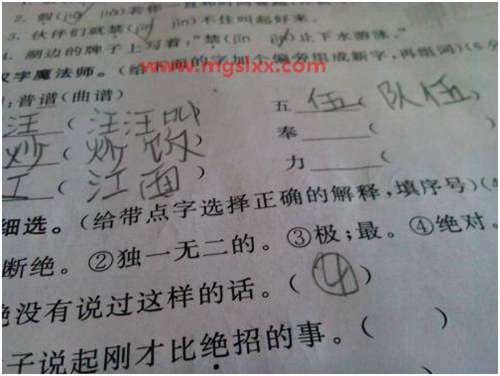 2. 假(jiǎ jià)若
3. 伙伴们就禁(jīn jìn)不住叫起好来。
4. 湖边的牌子上写着,“禁(jīn jìn)止下水游泳。”
汉字魔法师。(给下面的字加个偏旁组成新字,再组词)(6分
www.mgslxx.com
:普谱(曲谱)
汪(汪汪叫 五 伍(队伍)
炒(炒饭 奉 (
工(江面) 力 (
细选。(给带点字选择正确的解释,填序号)(4
断绝。②独一无二的。③极;最。④绝对。
绝没有说过这样的话。(④)
子说起刚才比绝招的事。( )